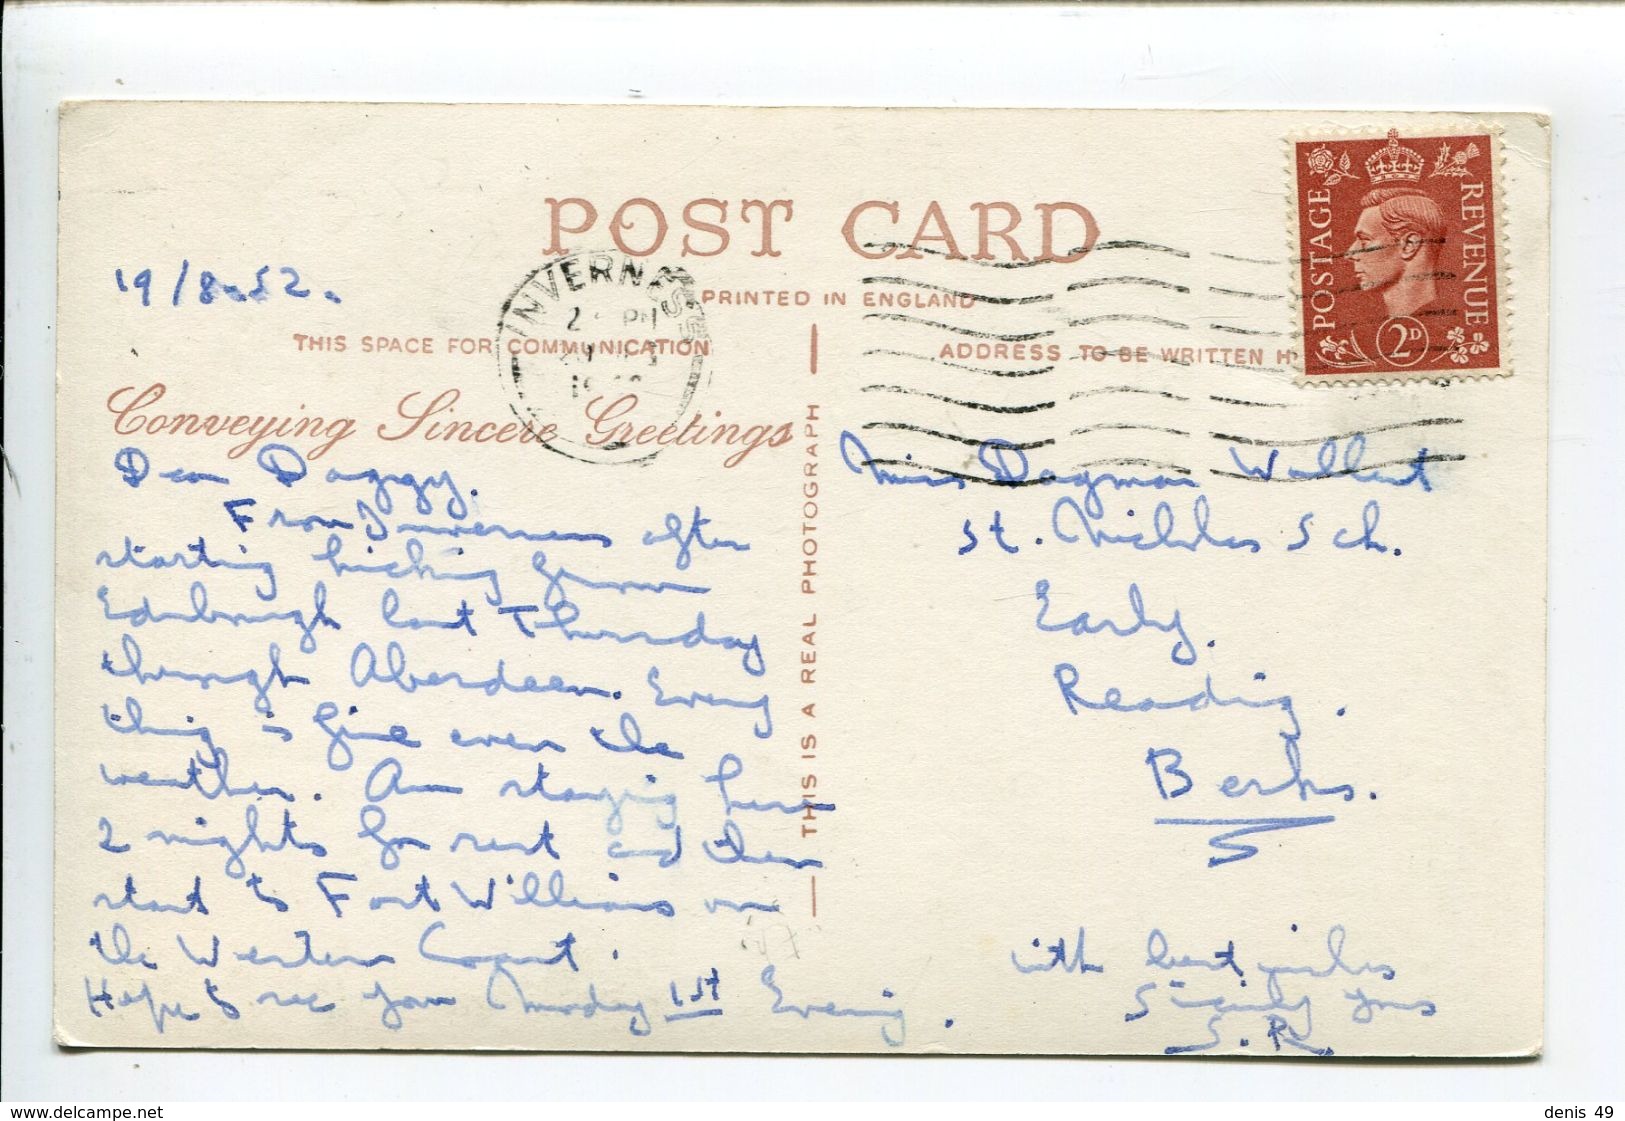 POST CARD
19/8.52.
INVERNESS
PRINTED IN ENGLAND
THIS SPACE FOR COMMUNICATION
ADDRESS TO BE WRITTEN H
POSTAGE
REVENUE
2D
Conveying Sincere Greetings
THIS IS A REAL PHOTOGRAPH
Dear Daggy.
From Inverness after
starting hicking from
Edinburgh last Thursday
through Aberdeen. Every
thing is fine even the
weather. Am staying here
2 nights for rest and then
start to Fort Williams on
the Western Coast.
Hope to see you Monday 1st Evening.
Miss Dagmar
St. Nicholas Sch.
Early.
Reading.
Berks.
with best wishes
Sincerely yours
S.R.
www.delcampe.net
denis 49